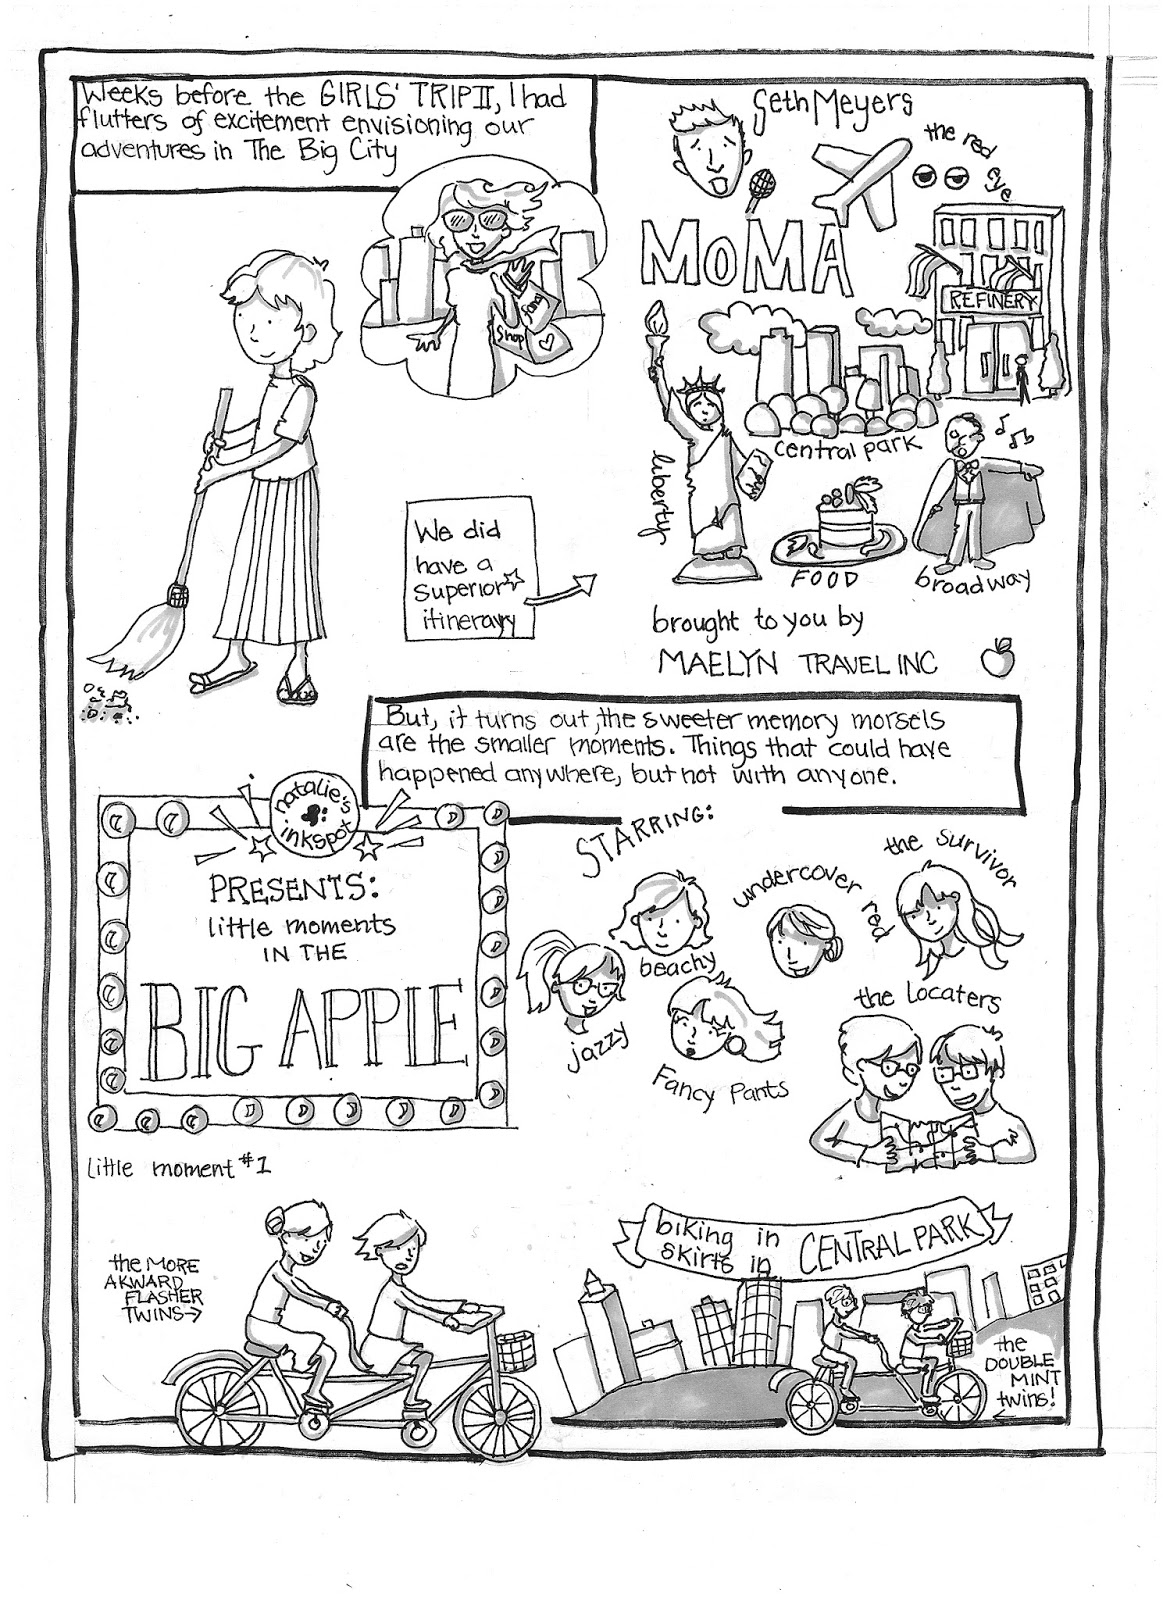 Weeks before the GIRLS' TRIP II, I had
flutters of excitement envisioning our
adventures in The Big City
Shop
Seth Meyers
the red eye
MoMA
REFINERY
liberty
central park
FOOD
broadway
We did
have a
superior
itinerary
brought to you by
MAELYN TRAVEL INC
But, it turns out, the sweeter memory morsels
are the smaller moments. Things that could have
happened anywhere, but not with anyone.
natalie's
inkspot
PRESENTS:
little moments
IN THE
BIG APPLE
STARRING:
jazzy
beachy
Fancy Pants
undercover red
the Survivor
the Locaters
little moment #1
the MORE
AKWARD
FLASHER
TWINS
biking in
skirts in
CENTRAL PARK
the
DOUBLE
MINT
twins!